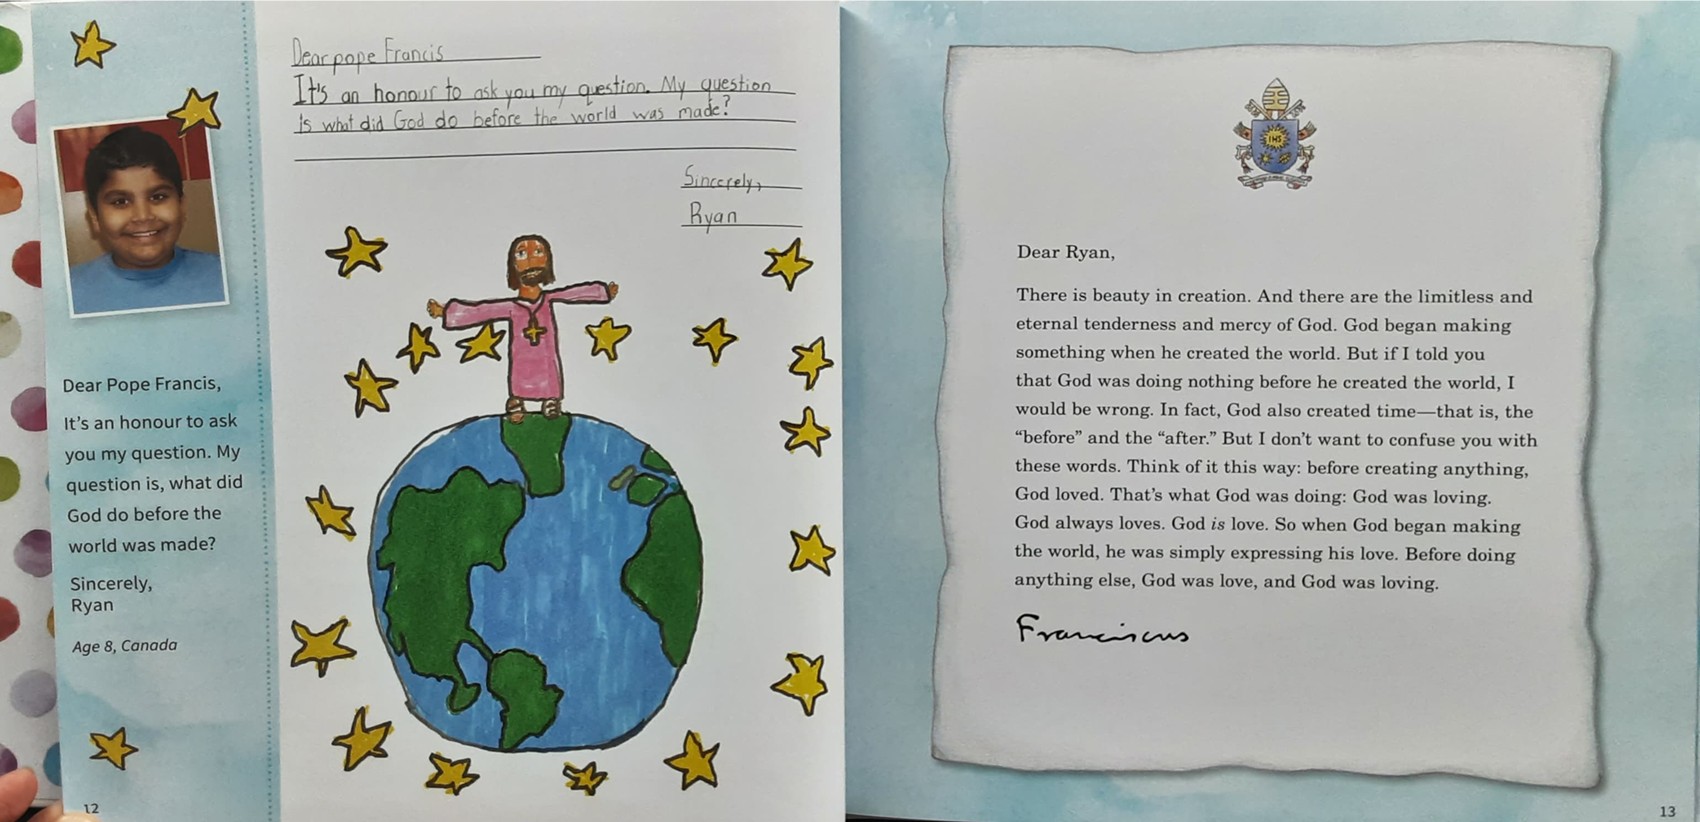 Dear pope Francis
It's an honour to ask you my question. My question
is what did God do before the world was made?
Sincerely,
Ryan
Dear Pope Francis,
It's an honour to ask
you my question. My
question is, what did
God do before the
world was made?
Sincerely,
Ryan
Age 8, Canada
12
IHS
Dear Ryan,
There is beauty in creation. And there are the limitless and
eternal tenderness and mercy of God. God began making
something when he created the world. But if I told you
that God was doing nothing before he created the world, I
would be wrong. In fact, God also created time—that is, the
“before” and the “after.” But I don't want to confuse you with
these words. Think of it this way: before creating anything,
God loved. That's what God was doing: God was loving.
God always loves. God is love. So when God began making
the world, he was simply expressing his love. Before doing
anything else, God was love, and God was loving.
Franciscus
13